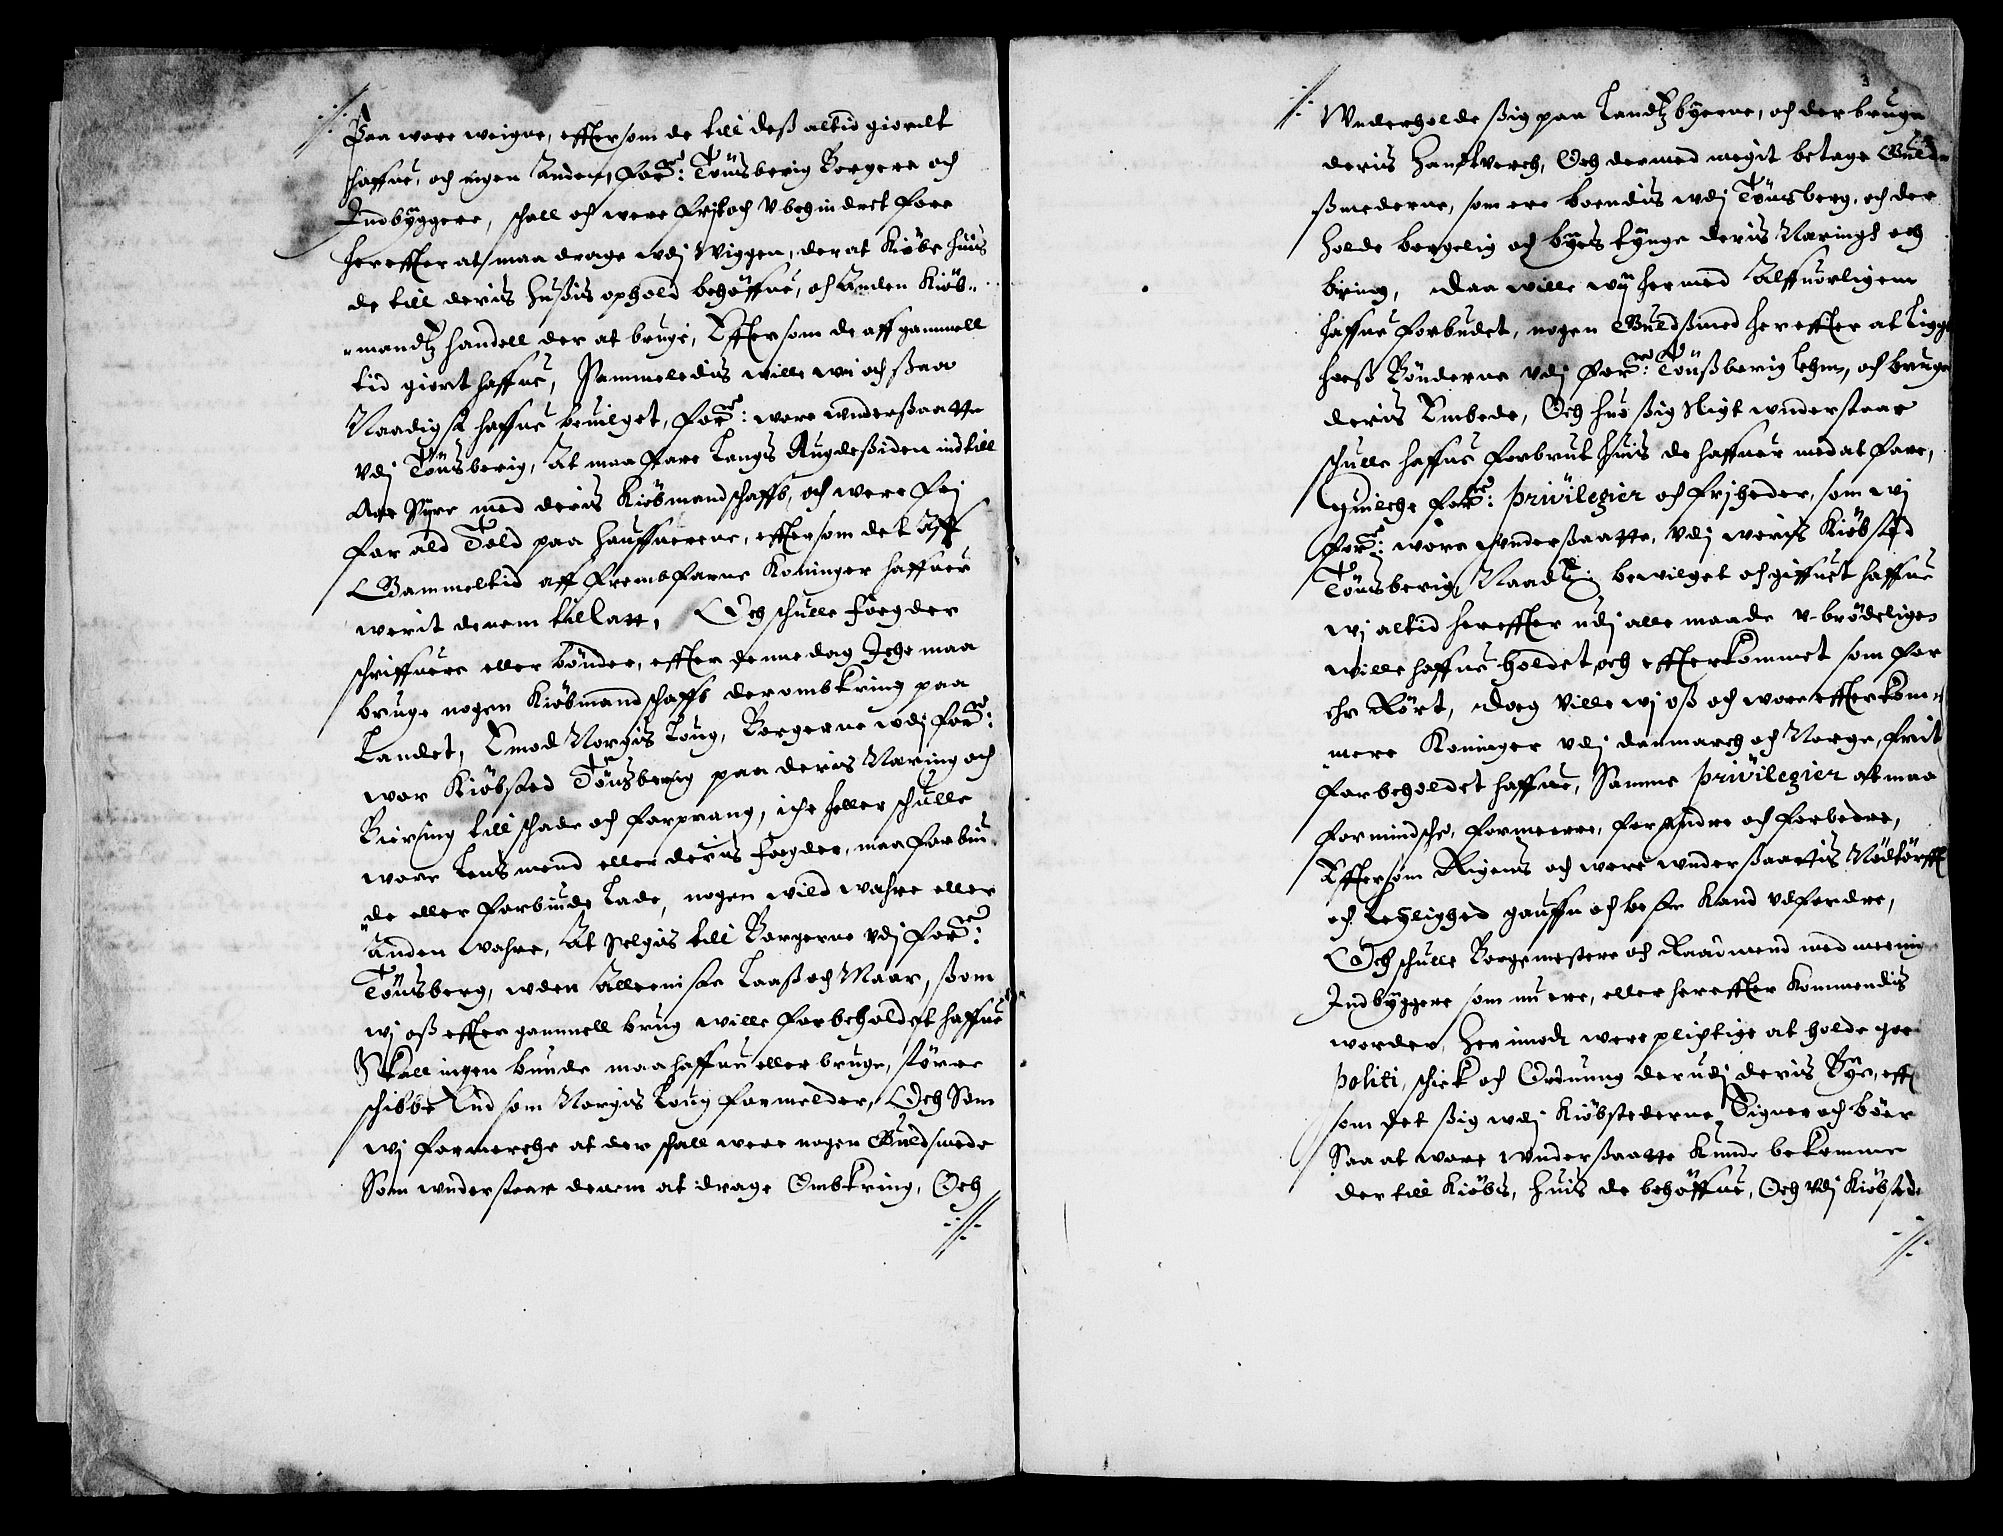 Paa wore weigne, effter som de till deß altid giordt
haffue, och ingen Anden, for^ne: Tönsberig Borgere och
Indbÿggere, schall och were frit och v behindret fore
her effter at maa drage vdj Wiggen, der at Kiöbe huis
de till deris Husßis ophold behöffue, och Anden Kiöb-
mandtz handell der at bruge, Effter som de aff gammell
tid giort haffue, Sammeledis wille wii och ßaa
Naadigst haffue beuilget, for^ne: wore vnderßaatte
Vdj Tönsberig, At maa fare Langs Augdeßiden ind till
Aae Syre med deris Kiöbmandschaff, och were frj
for ald Told paa Hauffnerne, effter som det Aff
Gammel tid aff frembfarne Koninger haffuer
werit denem tillatt, Och schulle foegder
schriffuere eller bönder, effter denne dag Iche maa
bruge nogen Kiöbmandschaff der ombkring paa
Landet, Emod Norgis Loug, Borgerne vdj for^ne:
wor Kiöbsted Tönsberig paa deris Næring och
Biering till schade och forprang, iche heller schulle
wore Lensmend eller deris foegder, maa forbiu-
de eller forbiude Lade, nogen wild wahre eller
Anden wahre, At selgis till Borgerne vdj for^ne:
Tönsberg, vden Alleeniste Laaß och Maar, som
wj oß effter gammell brug wille forbeholdet haffue
Skall ingen bunde maa haffue eller bruge, större
schibbe End som Norgis Loug formelder, Och Som
wj formerche at der schall were nogen Guldsmede
Som vnderstaar denem at drage Ombkring, Och
3
Wnderholde ßig paa Landtzbÿerne, och der bruge
deris Handtverch, Och dermed megit betage Guld-
ßmederne, som ere boendis vdj Tönsberg, och der
holde borgelig och bÿes tÿnge deris Næringh och
biring, Daa wille wÿ hermed Alffuorligenn
haffue forbudet, nogen Guldßmed her effter at Ligge
hoeß Bönderne vdj for^ne: Tönßberig Lehn, och bruge
deris Embede, Och huo ßig Sligt vnderstaar
schulle haffue forbrut huis de haffuer med at fare,
huilche for^ne: privilegier och frjheder, som wj
for^ne: wore vnderßaatte, vdj woris Kiöbsted
Tönsberig, Naadelig bewilget och giffuet haffue
wj altid her effter vdj alle maade v-brödeligen
wille haffue holdet och effterkommet som for
ehr Rört, Doeg ville wj oß och wore effterkom-
mere Koninger vdj Danmarch och Norge, frit
forbeholdet haffue, Samme privilegier at maa
formindsche, formeere, forandre och forbedre,
Effter som Rigens och wore vnderßaattis Nödtörfft
och Leÿlighed gauffn och beste kand vdfordre,
Och schulle Borgemestere och Raadmend med meenig
Indbÿggere som nu ere, eller her effter kommendis
worder, Her imodt were plichtige at holde goed
politi, schick och Ordnung der vdj deris Bÿe, effter
som det ßig vdj Kiöbstederne Eigner och böer
Saa at wore vnderßaatte kunde bekomme
der till Kiöbs, huis de behöffue, Och vdj Kiöbstede